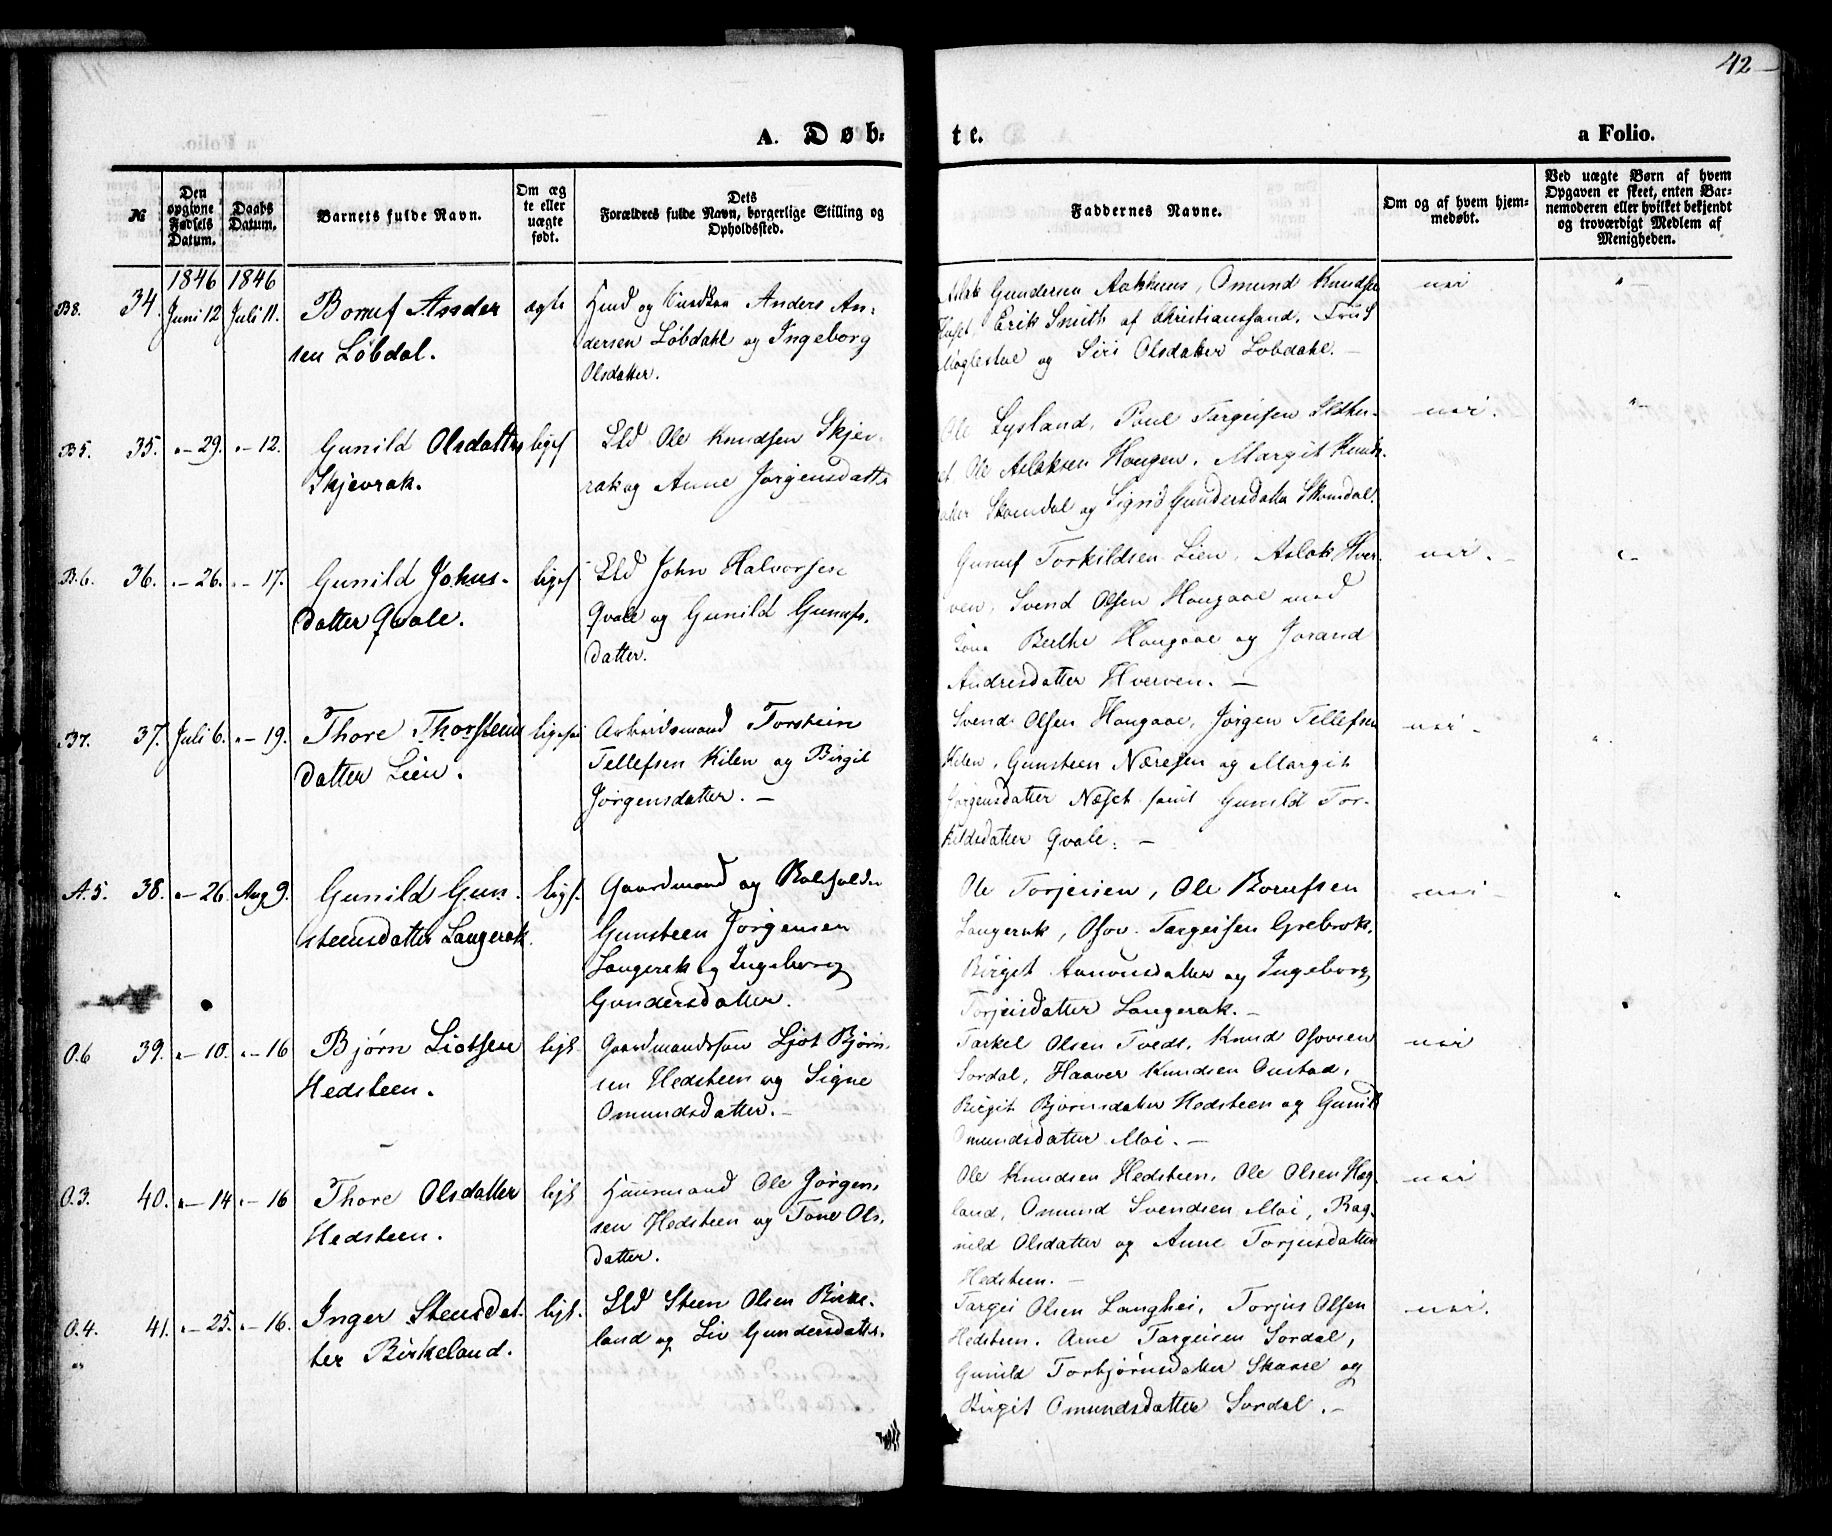 42
A. Døb:
te.
a Folio.
№
Den opgivne Fødsels Datum.
Daabs Datum.
Barnets fulde Navn.
Om æg te eller uægte født.
Dets Forældres fulde Navn, borgerlige Stilling og Opholdssted.
Faddernes Navne.
Om og af hvem hjem- medøbt.
Ved uægte Børn af hvem Opgaven er skeet, enten Bar- nemoderen eller hvilket bekjendt og troværdigt Medlem af Menigheden.
1846 1846
B8. 34. Juni 12 Juli 11. Boruf Ander
sen Løbdal.
ægte
og Anders An-
dersen Løbdahl og Ingeborg
Olsdatter.
Gundersen Aakhuus, Omund Knudsen
Erik Smith af Christianssand,
og Siri Olsdatter Løbdahl. –
nei
B5. 35. „– 29. „– 12. Gunild Olsdatter
Skjevrak.
ligesaa
Ole Knudsen Skjev-
rak og Anne Jørgensdatter
Ole Lysland, Poul Targeisen
Ole Aslaksen Hougen, Margit Knuds-
datter Skomdal og Signe Gundersdatter Skomdal.
nei.
B.6. 36. „– 26. „– 17. Gunild Johns-
datter Qvale.
John Halvorsen
Qvale og Gunild Gunufs-
datter.
Gunuf Torkildsen Lien, Aslak Hver-
ven, Svend Olsen Hougaae med
Kone Berthe Hougaae og Jorand
Andresdatter Hverven. –
nei. –
B7. 37. Juli 6. „– 19. Thore Thorsteens
datter Lien.
Arbeidsmand Torstein
Tellefsen Kilen og Birgit
Jørgensdatter. –
Svend Olsen Hougaae, Jørgen Tellefsen
Kilen, Gunsteen Næresen og Margit
Jørgensdatter Næset samt Gunild Tor-
kildsdatter Qvale. –
nei –
A.5. 38. „– 26. Aug 9. Gunild Gun-
steensdatter Langerak.
ligs.
Gaardmand og
Gunsteen Jørgensen
Langerak og Ingeborg
Gundersdatter.
Ole Torjusen, Ole Borufsen
Langerak, Osov Targeisen Grebrok,
Birgit Aanonsdatter og Ingeborg
Torjusdatter Langerak. –
nei –
O.6 39. „– 10. „– 16 Bjørn Liotsen
Hedsteen.
Gaardmandssøn Ljot Bjørn-
sen Hedsteen og Signe
Omundsdatter. –
Tarkel Olsen Tvedt, Knud Osovsen
Sordal, Haaver Knudsen Oustad,
Birgit Bjørnsdatter Hedsteen og Gunild
Omundsdatter Moi. –
nei
O.3. 40. „– 14 „– 16 Thore Olsdatter
Hedsteen.
Huusmand Ole Jørgen-
sen Hedsteen og Tone Ols-
datter.
Ole Knudsen Hedsteen, Ole Olsen Hæg-
land, Omund Svendsen Moi, Rag-
nild Olsdatter og Anne Torjusdatter
Hedsteen. –
nei
O.4. 41. „– 25. „– 16. Inger Steensdat-
ter Birkeland.
Steen Olsen Birke-
land og Liv Gundersdatter.
Targei Olsen Langhei, Torjus Olsen
Hedsteen, Arne Targeisen Sordal,
Gunild Torbjørnsdatter Skaare og
Birgit Omundsdatter Sordal. –
nei.